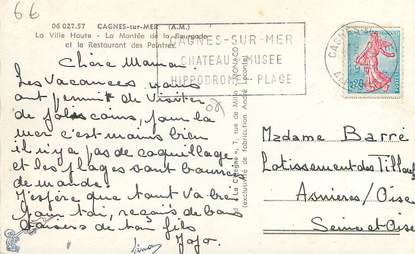 66
06 027.57 CAGNES-sur-MER (A.M.)
La Ville Haute - La Montée de la Bourgade
et le Restaurant des Peintres
CAGNES-SUR-MER
CHATEAU MUSEE
HIPPODROME PLAGE
CAGNES
Chère Maman
Les Vacances nous
ont permis de Visiter
de jolis coins, pour la
mer c'est moins bien
il n'y a pas de coquillage
et les plages sont
de monde.
J'espère que tout va bien
pour toi, reçois de bons
baisers de ton fils
Jojo.
7, rue de Millo - MONACO
(exclusivité de fabrication André Leconte)
0,20
Madame Barré
Lotissement des Tilleuls
Asnières/Oise
Seine et Oise